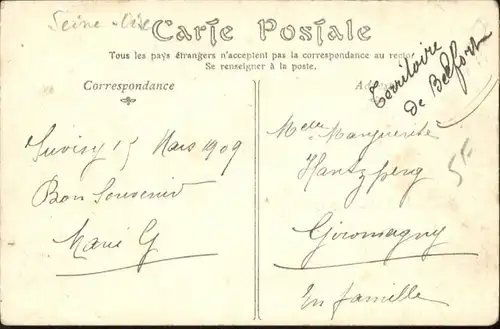 Seine-Oise
Carte Postale
Tous les pays étrangers n'acceptent pas la correspondance au recto
Se renseigner à la poste.
Correspondance
Juvisy 15 Mars 1909
Bon Souvenir
Marie G
Territoire
de Belfort
Melle Marguerite
Hantzperg
Giromagny
En famille
5F